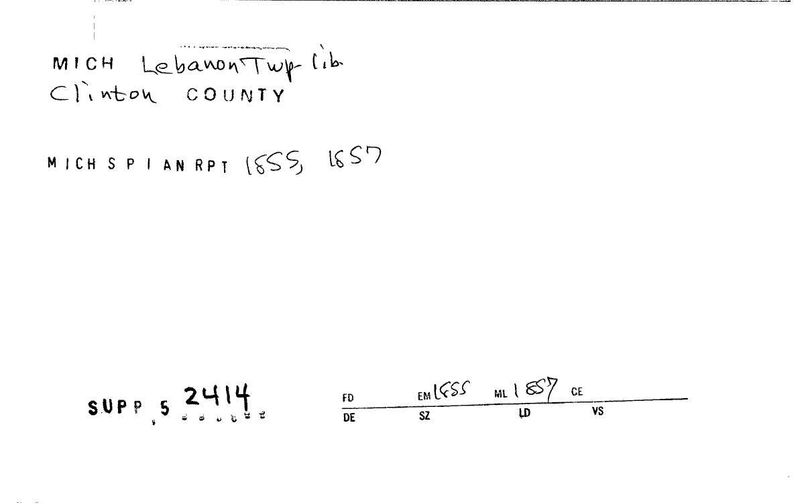 MICH Lebanon Twp lib
Clinton COUNTY
MICH S P I AN RPT 1855, 1857
SUPP 5 2414
FD EM 1855 ML 1857 CE
DE SZ LD VS